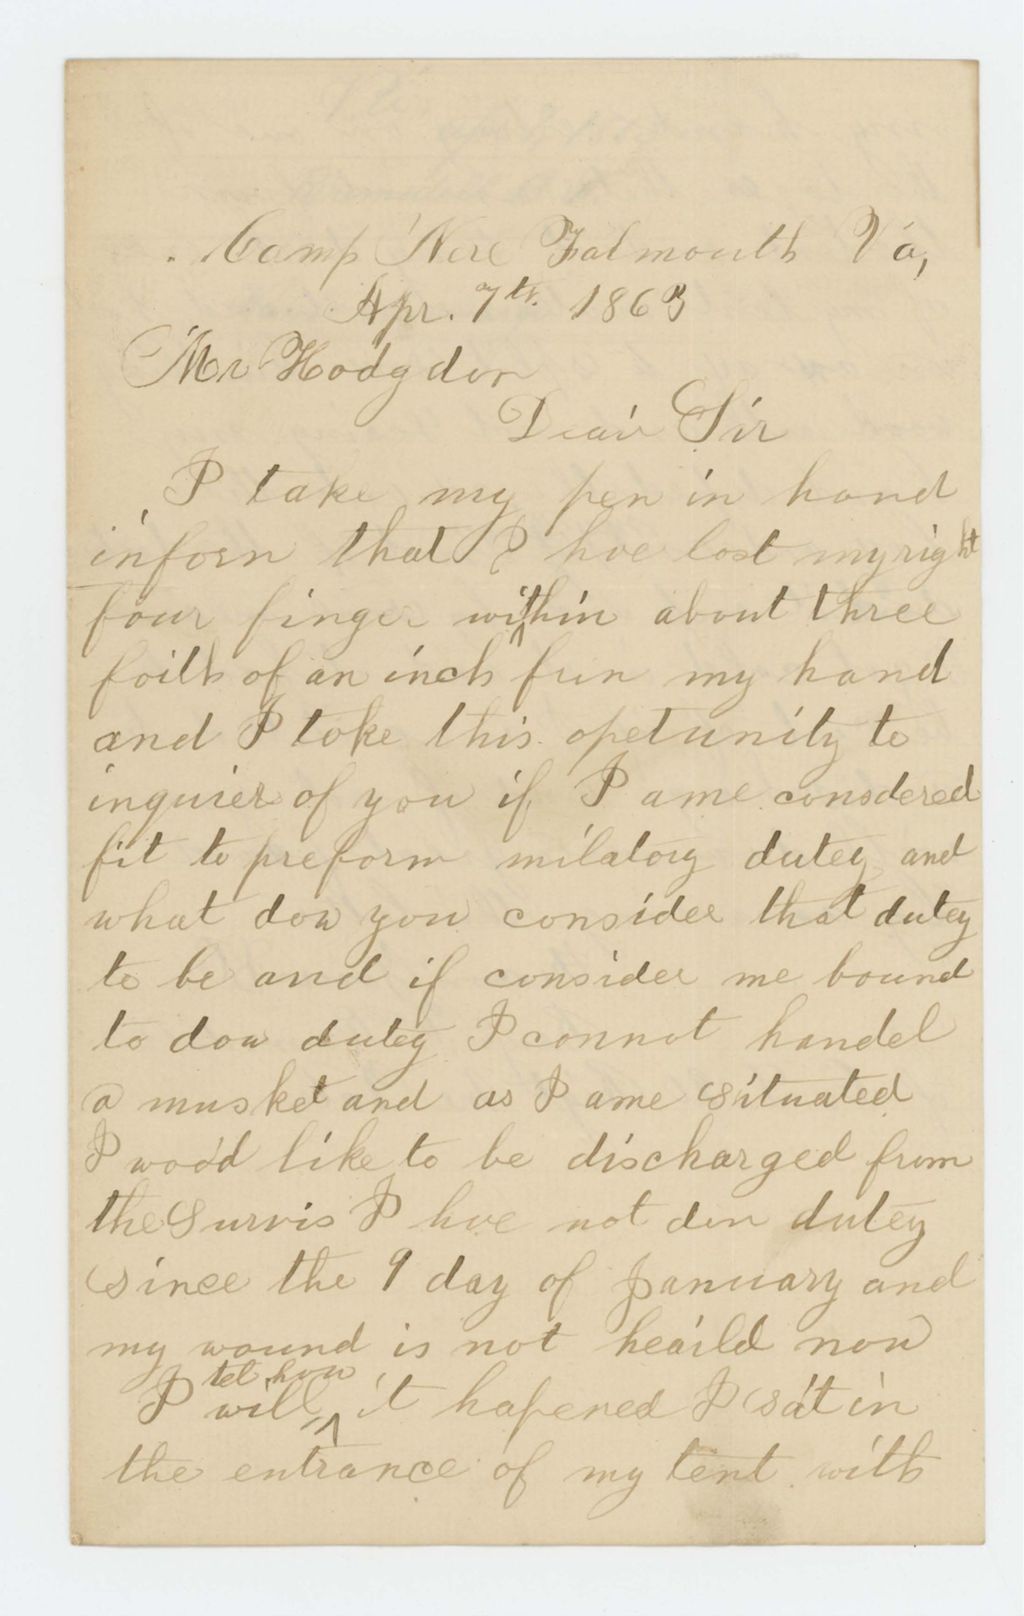 Camp Nere Falmouth Va,
Apr. 7th. 1863
Mr Hodgdon
Dear Sir
I take my pen in hand
inforn that I hve lost my right
four finger within about three
foith of an inch frun my hand
and I take this opetunity to
inquier of you if I ame consdered
fit to preform milatory dutey and
what dow you consider that dutey
to be and if consider me bound
to dow dutey I connot handel
a musket and as I ame situated
I wood like to be discharged from
the Survis I hve not dun dutey
since the 9 day of January and
my wound is not heaild now
I will tel how it hapened I sat in
the entrance of my tent with